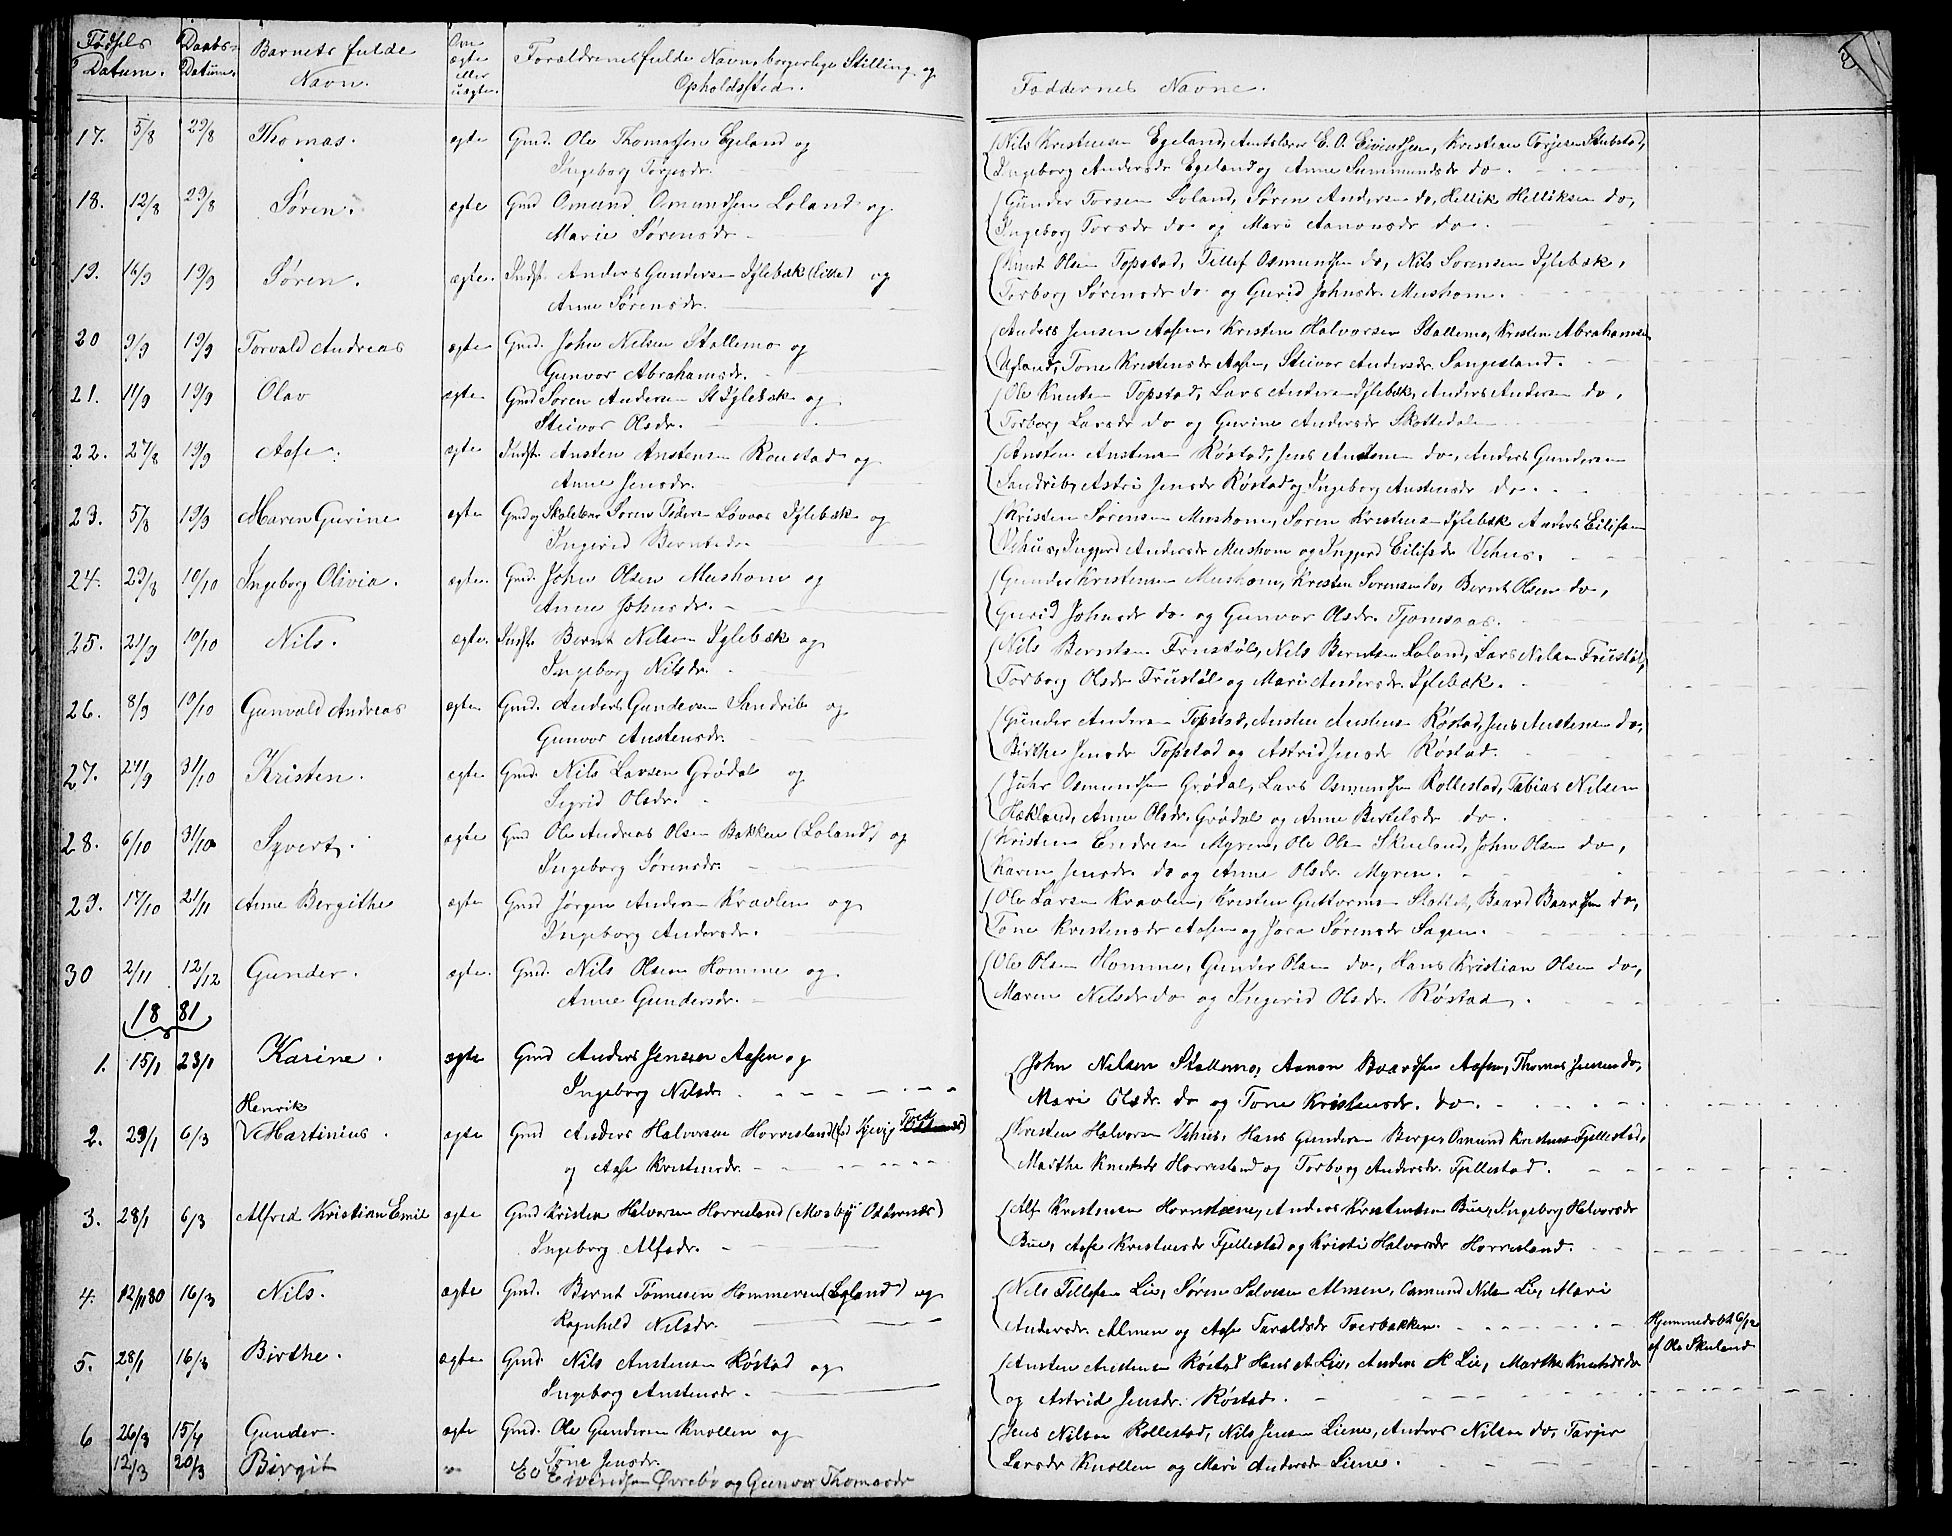 Fødsels Datum. Daabs Datum. Barnets fulde Navn. Om ægte eller uægte. Forældrenes fulde Navn, borgerlige Stilling og Opholdssted. Faddernes Navne.
17. 5/8 29/8 Thomas. ægte Gmd. Ole Thomassen Egeland og Nils Kristensen Egeland, Amtslærer E. O. Eivindsen, Kristian Torjesen Stubstøl,
Ingeborg Torjesdr. Ingeborg Andersdr Egeland og Anne Summundsdr do.
18. 12/8 29/8 Søren. ægte Gmd Omund Omundsen Loland og Gunder Torsen Loland, Søren Andersen do, Hellik Helliksen do,
Marie Sørensdr Ingeborg Torsdr do og Mari Aanonsdr do.
19. 16/9 19/9 Søren. ægte. Indst. Anders Gundersen Iglebæk (Lille) og Knut Olsen Topstad, Tellef Osmundsen do, Nils Sørensen Iglebæk,
Anne Sørensdr. Torborg Sørensdr do og Gurid Johnsdr. Mushom.
20 9/9 19/9 Torvald Andreas ægte Gmd. John Nilsen Stallemo og Anders Jensen Aasen, Kristen Halvorsen Stallemo, Kristen Abrahamsen
Gunvor Abrahamsdr. Ugland, Tone Kristensdr Aasen, Steivor Andersdr. Sangesland.
21. 11/9 19/9 Olav ægte Gmd Søren Andersen St Iglebæk og Ole Knutsen Topstad, Lars Andersen Iglebæk, Anders Andersen do,
Steivor Olsdr. Torborg Larsdr do og Gurine Andersdr Skottedalen
22. 27/8 19/9 Aase. ægte Indst. Ansten Anstensen Roustad og Ansten Anstensen Røstad, Jens Anstensen do, Anders Gundersen
Anne Jensdr. Sandrib, Astri Jensdr Røstad og Ingeborg Anstensdr do.
23. 5/8 19/9 Maren Gurine ægte Gmd og Skolelærer Søren Pedersen Løvaas Iglebæk og Kristen Sørensen Mushom, Søren Kristensen Iglebæk Anders Eilifsen
Ingerid Berntsdr. Vehus, Ingjerd Andersdr Mushom og Ingjerd Eilifsdr Vehus.
24. 29/8 10/10 Ingeborg Olivia. ægte. Gmd. John Olsen Mushom og Gunder Kristensen Mushom, Kristen Sørensen do, Bernt Olsen do,
Anne Johnsdr. Gurid Johnsdr do og Gunvor Olsdr. Tjomsaas.
25. 21/9 10/10 Nils. ægte. Indst. Bernt Nilsen Iglebæk og Nils Berntsen Frustøl, Nils Berntsen Loland, Lars Nilsen Frustøl,
Ingeborg Nilsdr. Torborg Olsdr Frustøl og Mari Andersdr. Iglebæk.
26. 8/9 10/10 Gunvald Andreas ægte. Gmd. Anders Gundersen Sandrib og Gunder Andersen Topstad, Ansten Anstensen Røstad, Jens Anstensen do,
Gunvor Anstensdr. Birthe Jensdr Topstad og Astrid Jensdr Røstad.
27. 24/9 31/10 Kristen. ægte Gmd. Nils Larsen Grødal og Juhr Osmundsen Grødal, Lars Osmundsen Rollestad, Tobias Nilsen
Sigrid Olsdr. Hækland, Anne Olsdr. Grødal og Anne Bertelsdr do.
28. 6/10 31/10 Syvert. ægte Gmd Ole Andreas Olsen Bakken (Loland) og Kristen Endresen Myren, Ole Olsen Skuland, John Olsen do,
Ingeborg Sørensdr. Karen Jensdr. do og Anne Olsdr. Myren.
29. 17/10 21/11 Anne Bergithe ægte Gmd Jørgen Andersen Kravlen og Ole Larsen Kravlen, Kristen Guttormsen Stallet, Baard Baardsen do,
Ingeborg Andersdr. Tone Kristensdr Aasen og Jora Sørensdr Sagen.
30 2/11 12/12 Gunder. ægte. Gmd. Nils Olsen Homme og Ole Olsen Homme, Gunder Olsen do, Hans Kristian Olsen do,
Anne Gundersdr. Maren Nilsdr do og Ingerid Olsdr. Røstad.
1881
1. 15/1 23/1 Karine. ægte Gmd Anders Jensen Aasen og John Nilsen Stallemo, Aanon Baardsen Aasen, Thomas Jensen do,
Ingeborg Nilsdr. Mari Olsdr. do og Tone Kristensdr. do.
Henrik
2. 29/1 6/3 Martinius. ægte Gmd Anders Halvorsen Horrisland Tved Kristen Halvorsen Vehus, Hans Gundersen Berge, Osmund Kristensen Fjellestad,
og Aase Kristensdr. Marthe Knutsdr Horrisland og Torborg Andersdr. Fjellestad.
3. 28/1 6/3 Alfred Kristian Emil ægte Gmd Kristen Halvorsen Horrisland (Mosby Oddernes) Alf Kristensen Anders Kristensen Bue, Ingeborg Halvorsdr
Ingeborg Alfsdr. Bue, Aase Kristensdr Fjellestad og Kristi Halvorsdr Horrisland.
4. 12/11 80 16/3 Nils. ægte Gmd. Bernt Tønnesen Hommeren (Løland) og Nils Tellefsen Lie, Søren Salvesen Almen, Osmund Nilsen Lie, Mari
Ragnhild Nilsdr. Andersdr. Almen og Aase Taraldsdr Tverbakken. Hjemmedøbt 6/12
5. 28/1 16/3 Birthe. ægte Gmd. Nils Anstensen Røstad og Ansten Anstensen Røstad Hans A Lie, Anders H Lie, Marthe Knutsdr do af Ole Skuland
Ingeborg Anstensdr. og Astrid Jensdr. Røstad.
6 26/3 15/4 Gunder. ægte Gmd. Ole Gundersen Knollen og Jens Nilsen Rollestad, Nils Jensen Liene, Anders Nilsen do, Tarjer
Tone Jensdr. Larsdr Knollen og Mari Andersdr Liene.
12/3 20/3 Birgit E O Eivindsen Øvrebø og Gunvor Thomasdr